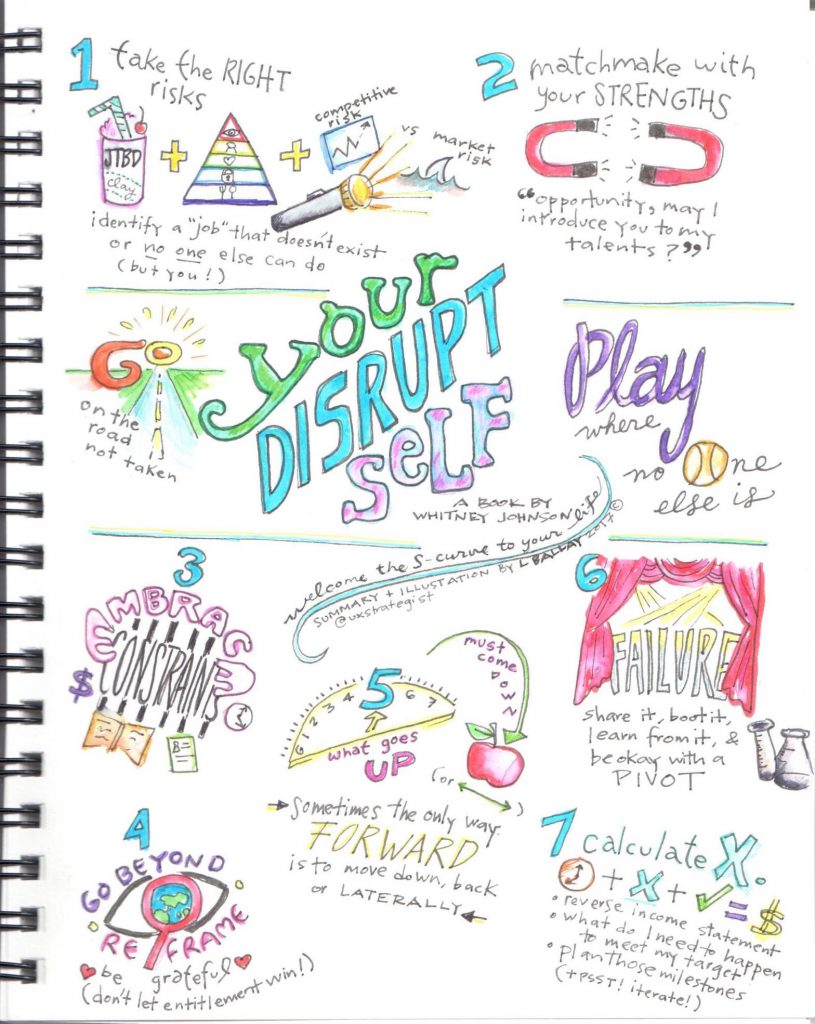 1 take the RIGHT
risks
JTBD
clay
+
+
competitive
risk
vs market
risk
identify a "job" that doesn't exist
or no one else can do
(but you!)
2 matchmake with
your STRENGTHS
"opportunity, may I
introduce you to my
talents?"
GO
on the
road
not taken
your
DISRUPT
SELF
A BOOK BY
WHITNEY JOHNSON
welcome the S-curve to your life
SUMMARY + ILLUSTATION BY L BALLAY 2017 ©
@uxstrategist
Play
where
no One
else is
3
EMBRACE
CONSTRAINTS
$
B=
4
GO BEYOND
REFRAME
be grateful
(don't let entitlement win!)
0 1 2 3 4 5 6 7
what goes
UP
must
come
DOWN
(or )
Sometimes the only way
FORWARD
is to move down, back
or LATERALLY
6
FAILURE
share it, boot it,
learn from it, &
be okay with a
PIVOT
7 calculate X.
+ X + = $
• reverse income statement
• what do I need to happen
to meet my target
• plan those milestones
(+ PSST! iterate!)